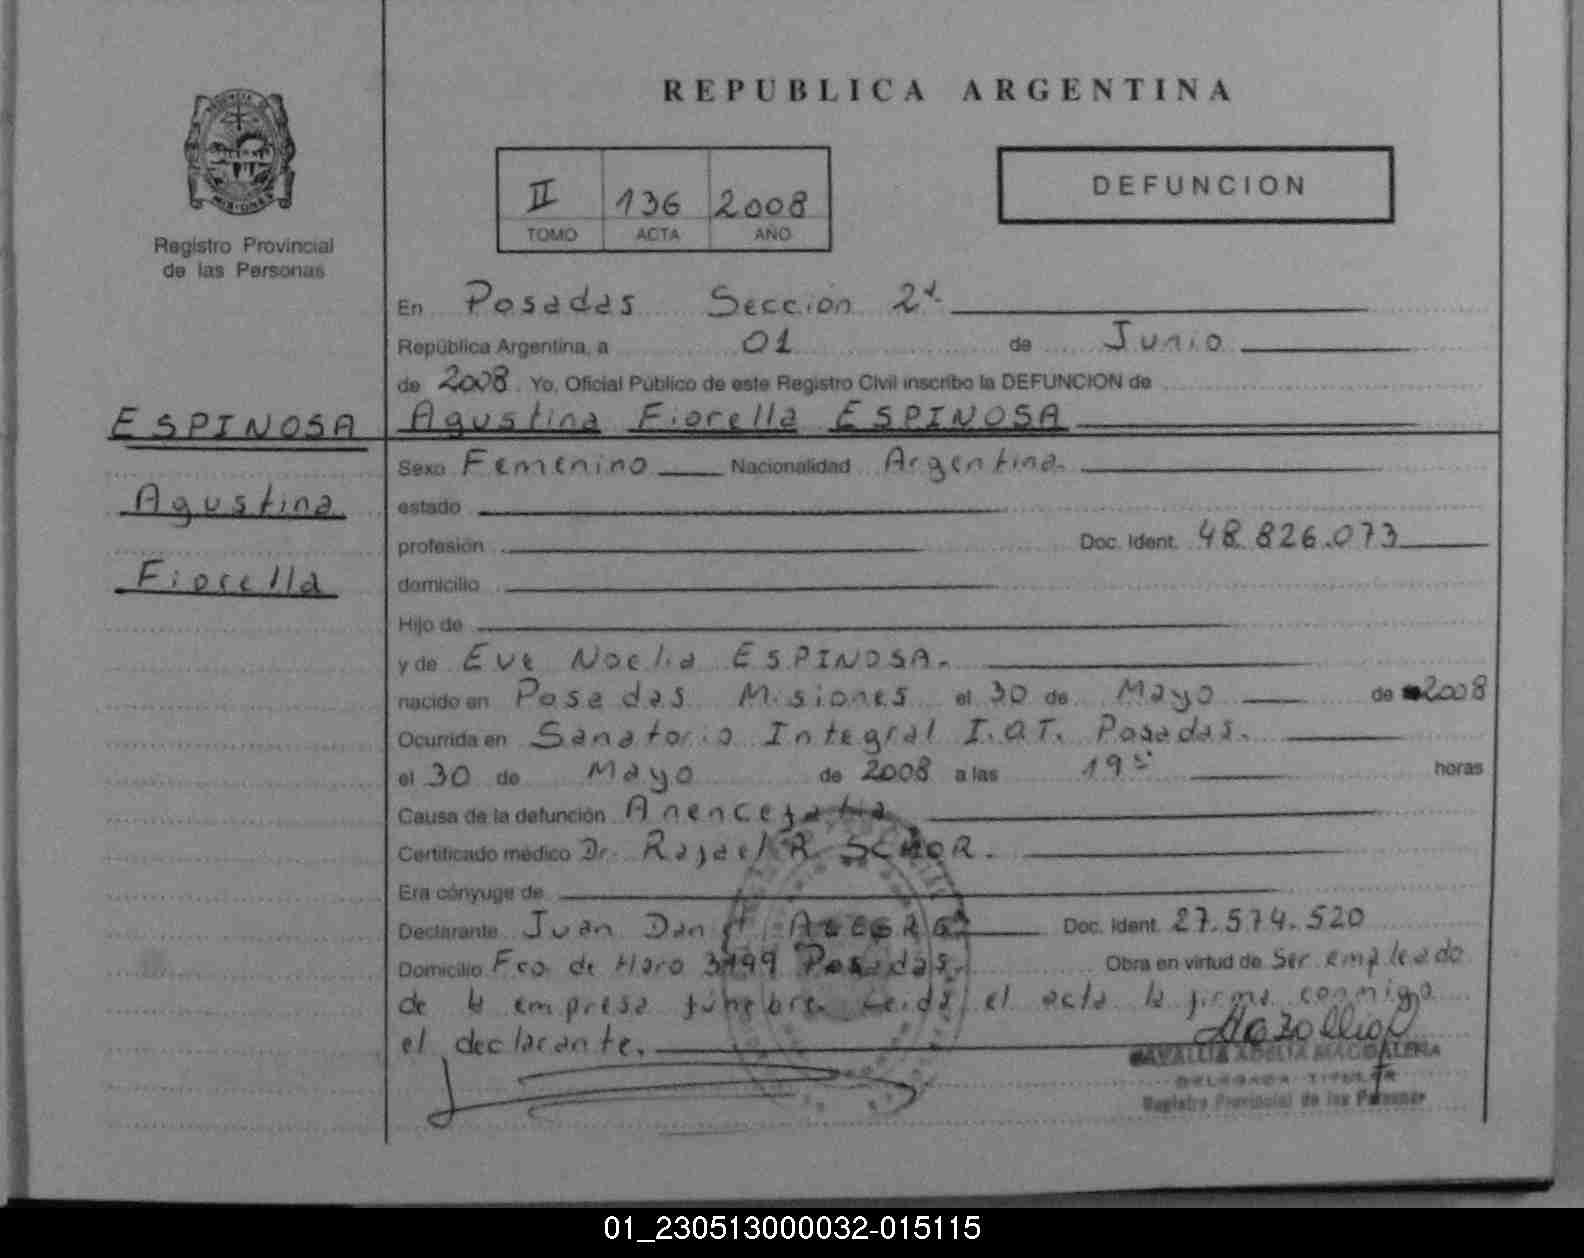 REPUBLICA ARGENTINA
MISIONES
Registro Provincial
de las Personas
II 136 2008
TOMO ACTA AÑO
DEFUNCION
En Posadas Sección 2ª
República Argentina, a 01 de Junio
de 2008. Yo, Oficial Público de este Registro Civil inscribo la DEFUNCION de
ESPINOSA
Agustina
Fiorella
Agustina Fiorella ESPINOSA
Sexo Femenino Nacionalidad Argentina.
estado
profesión Doc. Ident. 48.826.073
domicilio
Hijo de
y de Eve Noelia ESPINOSA.
nacido en Posadas Misiones el 30 de Mayo de 2008
Ocurrida en Sanatorio Integral I.O.T. Posadas.
el 30 de Mayo de 2008 a las 19 horas
Causa de la defunción Anencefalia
Certificado médico Dr. Rafael R.
Era cónyuge de
Declarante Juan Doc. Ident. 27.574.520
Domicilio Fco. de Haro Posadas. Obra en virtud de Ser empleado
de la empresa fúnebre. Leida el acta la firma conmigo
el declarante.
ADELIA MAGDALENA
DELEGADA TITULAR
Registro Provincial de las Personas
01_230513000032-015115